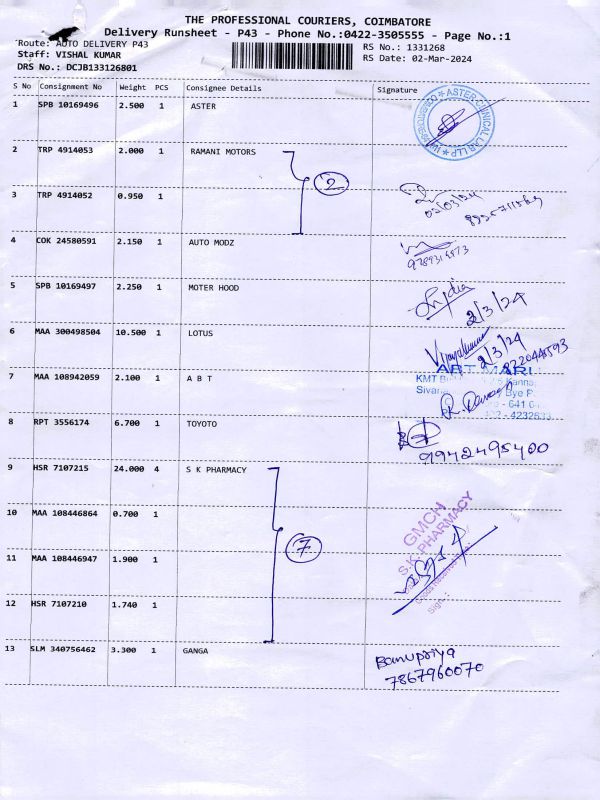 THE PROFESSIONAL COURIERS, COIMBATORE
Delivery Runsheet - P43 - Phone No.:0422-3505555 - Page No.:1
Route: AUTO DELIVERY P43
RS No.: 1331268
Staff: VISHAL KUMAR
RS Date: 02-Mar-2024
DRS No.: DCJB133126801
S No Consignment No Weight PCS Consignee Details Signature
1 SPB 10169496 2.500 1 ASTER
ASTER CLINICAL LAB LLP
2 TRP 4914053 2.000 1 RAMANI MOTORS
2
3 TRP 4914052 0.950 1
02/03/24
4 COK 24580591 2.150 1 AUTO MODZ
5 SPB 10169497 2.250 1 MOTER HOOD
2/3/24
6 MAA 300498504 10.500 1 LOTUS
Vijayakumar 2/3/24
7 MAA 108942059 2.100 1 A B T
ABT MARI
KMT
Bye P
- 641 6
- 4232833
8 RPT 3556174 6.700 1 TOYOTO
9942495400
9 HSR 7107215 24.000 4 S K PHARMACY
10 MAA 108446864 0.700 1
GMCH
S.K. PHARMACY
7
11 MAA 108446947 1.900 1
Sign.:
12 HSR 7107210 1.740 1
13 SLM 340756462 3.300 1 GANGA
Banupriya
7867960070